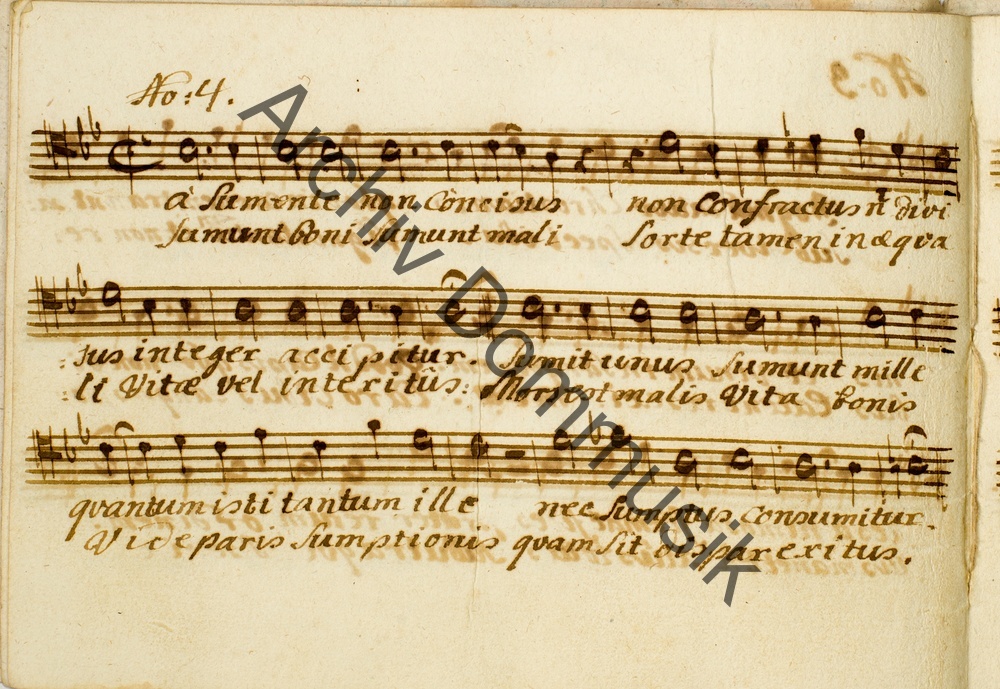 No: 4.
No. 3
à Sumente non Concisus non Confractus nt divi
Sumunt boni sumunt mali Sorte tamen inæqua
:sus integer accipitur. Sumit unus Sumunt mille
li Vitæ vel interitûs: Mors est malis Vita bonis
quantum isti tantum ille nec Sumptus Consumitur.
Vide paris Sumptionis quam Sit dispar exitus.
Archiv Dommusik